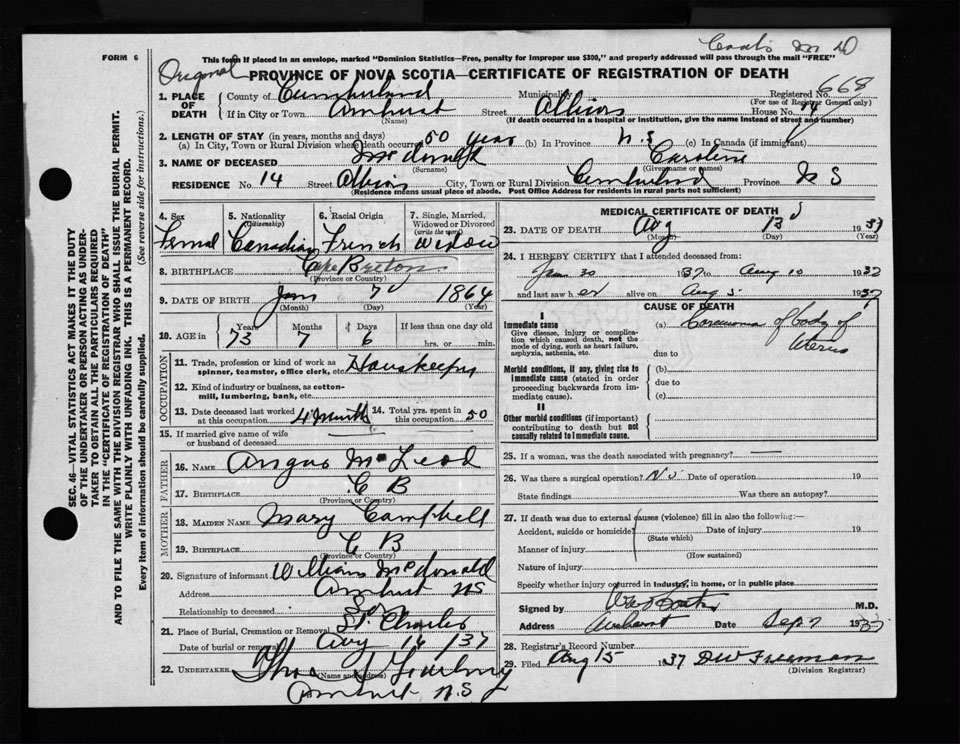 FORM 6
This form if placed in an envelope, marked "Dominion Statistics—Free, penalty for improper use $300," and properly addressed will pass through the mail "FREE"
PROVINCE OF NOVA SCOTIA—CERTIFICATE OF REGISTRATION OF DEATH
1. PLACE OF DEATH { County of Cumberland Municipality Registered No. 668
(For use of Registrar General only)
If in City or Town Amherst Street Albion House No. 14
(Name) (If death occurred in a hospital or institution, give the name instead of street and number)
2. LENGTH OF STAY (in years, months and days)
(a) In City, Town or Rural Division where death occurred 50 years (b) In Province N.S (c) In Canada (if immigrant)
3. NAME OF DECEASED McDonald Caroline
(Surname) (Given name or names)
RESIDENCE No. 14 Street Albion City, Town or Rural Division Cumberland Province N S
(Residence means usual place of abode. Post Office Address for residents in rural parts not sufficient)
4. Sex 5. Nationality (Citizenship) 6. Racial Origin 7. Single, Married, Widowed or Divorced (write the word)
Femal Canadian French Widow
8. BIRTHPLACE Cape Breton
(Province or Country)
9. DATE OF BIRTH Jan 7 1864
(Month) (Day) (Year)
10. AGE in Years Months Days If less than one day old
73 7 6 hrs. or min.
OCCUPATION
11. Trade, profession or kind of work as spinner, teamster, office clerk, etc. Houskeeping
12. Kind of industry or business, as cotton-mill, lumbering, bank, etc.
13. Date deceased last worked at this occupation 4 Month 14. Total yrs. spent in this occupation 50
15. If married give name of wife or husband of deceased
FATHER
16. NAME Angus McLeod
17. BIRTHPLACE C B
(Province or Country)
MOTHER
18. MAIDEN NAME Mary Campbell
19. BIRTHPLACE C B
(Province or Country)
20. Signature of informant William McDonald
Address Amherst NS
Relationship to deceased Son
21. Place of Burial, Cremation or Removal St. Charles
Date of burial or removal Aug 16 /37
22. UNDERTAKER Thos
(Name and address)
Amherst N.S
MEDICAL CERTIFICATE OF DEATH
23. DATE OF DEATH Aug 13 1937
(Month) (Day) (Year)
24. I HEREBY CERTIFY that I attended deceased from:
Jan 30 1937 to Aug 10 1937
and last saw her alive on Aug 5 1937
CAUSE OF DEATH
I
Immediate cause
Give disease, injury or complication which caused death, not the mode of dying, such as heart failure, asphyxia, asthenia, etc.
(a) Carcinoma of body of
Uterus
due to
Morbid conditions, if any, giving rise to immediate cause (stated in order proceeding backwards from immediate cause).
(b)
due to
(c)
II
Other morbid conditions (if important) contributing to death but not causally related to immediate cause.
25. If a woman, was the death associated with pregnancy? —
26. Was there a surgical operation? No Date of operation 19
State findings Was there an autopsy?
27. If death was due to external causes (violence) fill in also the following:—
Accident, suicide or homicide? Date of injury 19
(State which)
Manner of injury
(How sustained)
Nature of injury
Specify whether injury occurred in industry, in home, or in public place
Signed by M.D.
Address Amherst Date Sep 7 1937
28. Registrar's Record Number
29. Filed Aug 15 1937 DW Freeman
(Division Registrar)
SEC. 46—VITAL STATISTICS ACT MAKES IT THE DUTY
OF THE UNDERTAKER OR PERSON ACTING AS UNDER-
TAKER TO OBTAIN ALL THE PARTICULARS REQUIRED
IN THE "CERTIFICATE OF REGISTRATION OF DEATH"
AND TO FILE THE SAME WITH THE DIVISION REGISTRAR WHO SHALL ISSUE THE BURIAL PERMIT.
WRITE PLAINLY WITH UNFADING INK. THIS IS A PERMANENT RECORD.
Every item of information should be carefully supplied. (See reverse side for instructions.)